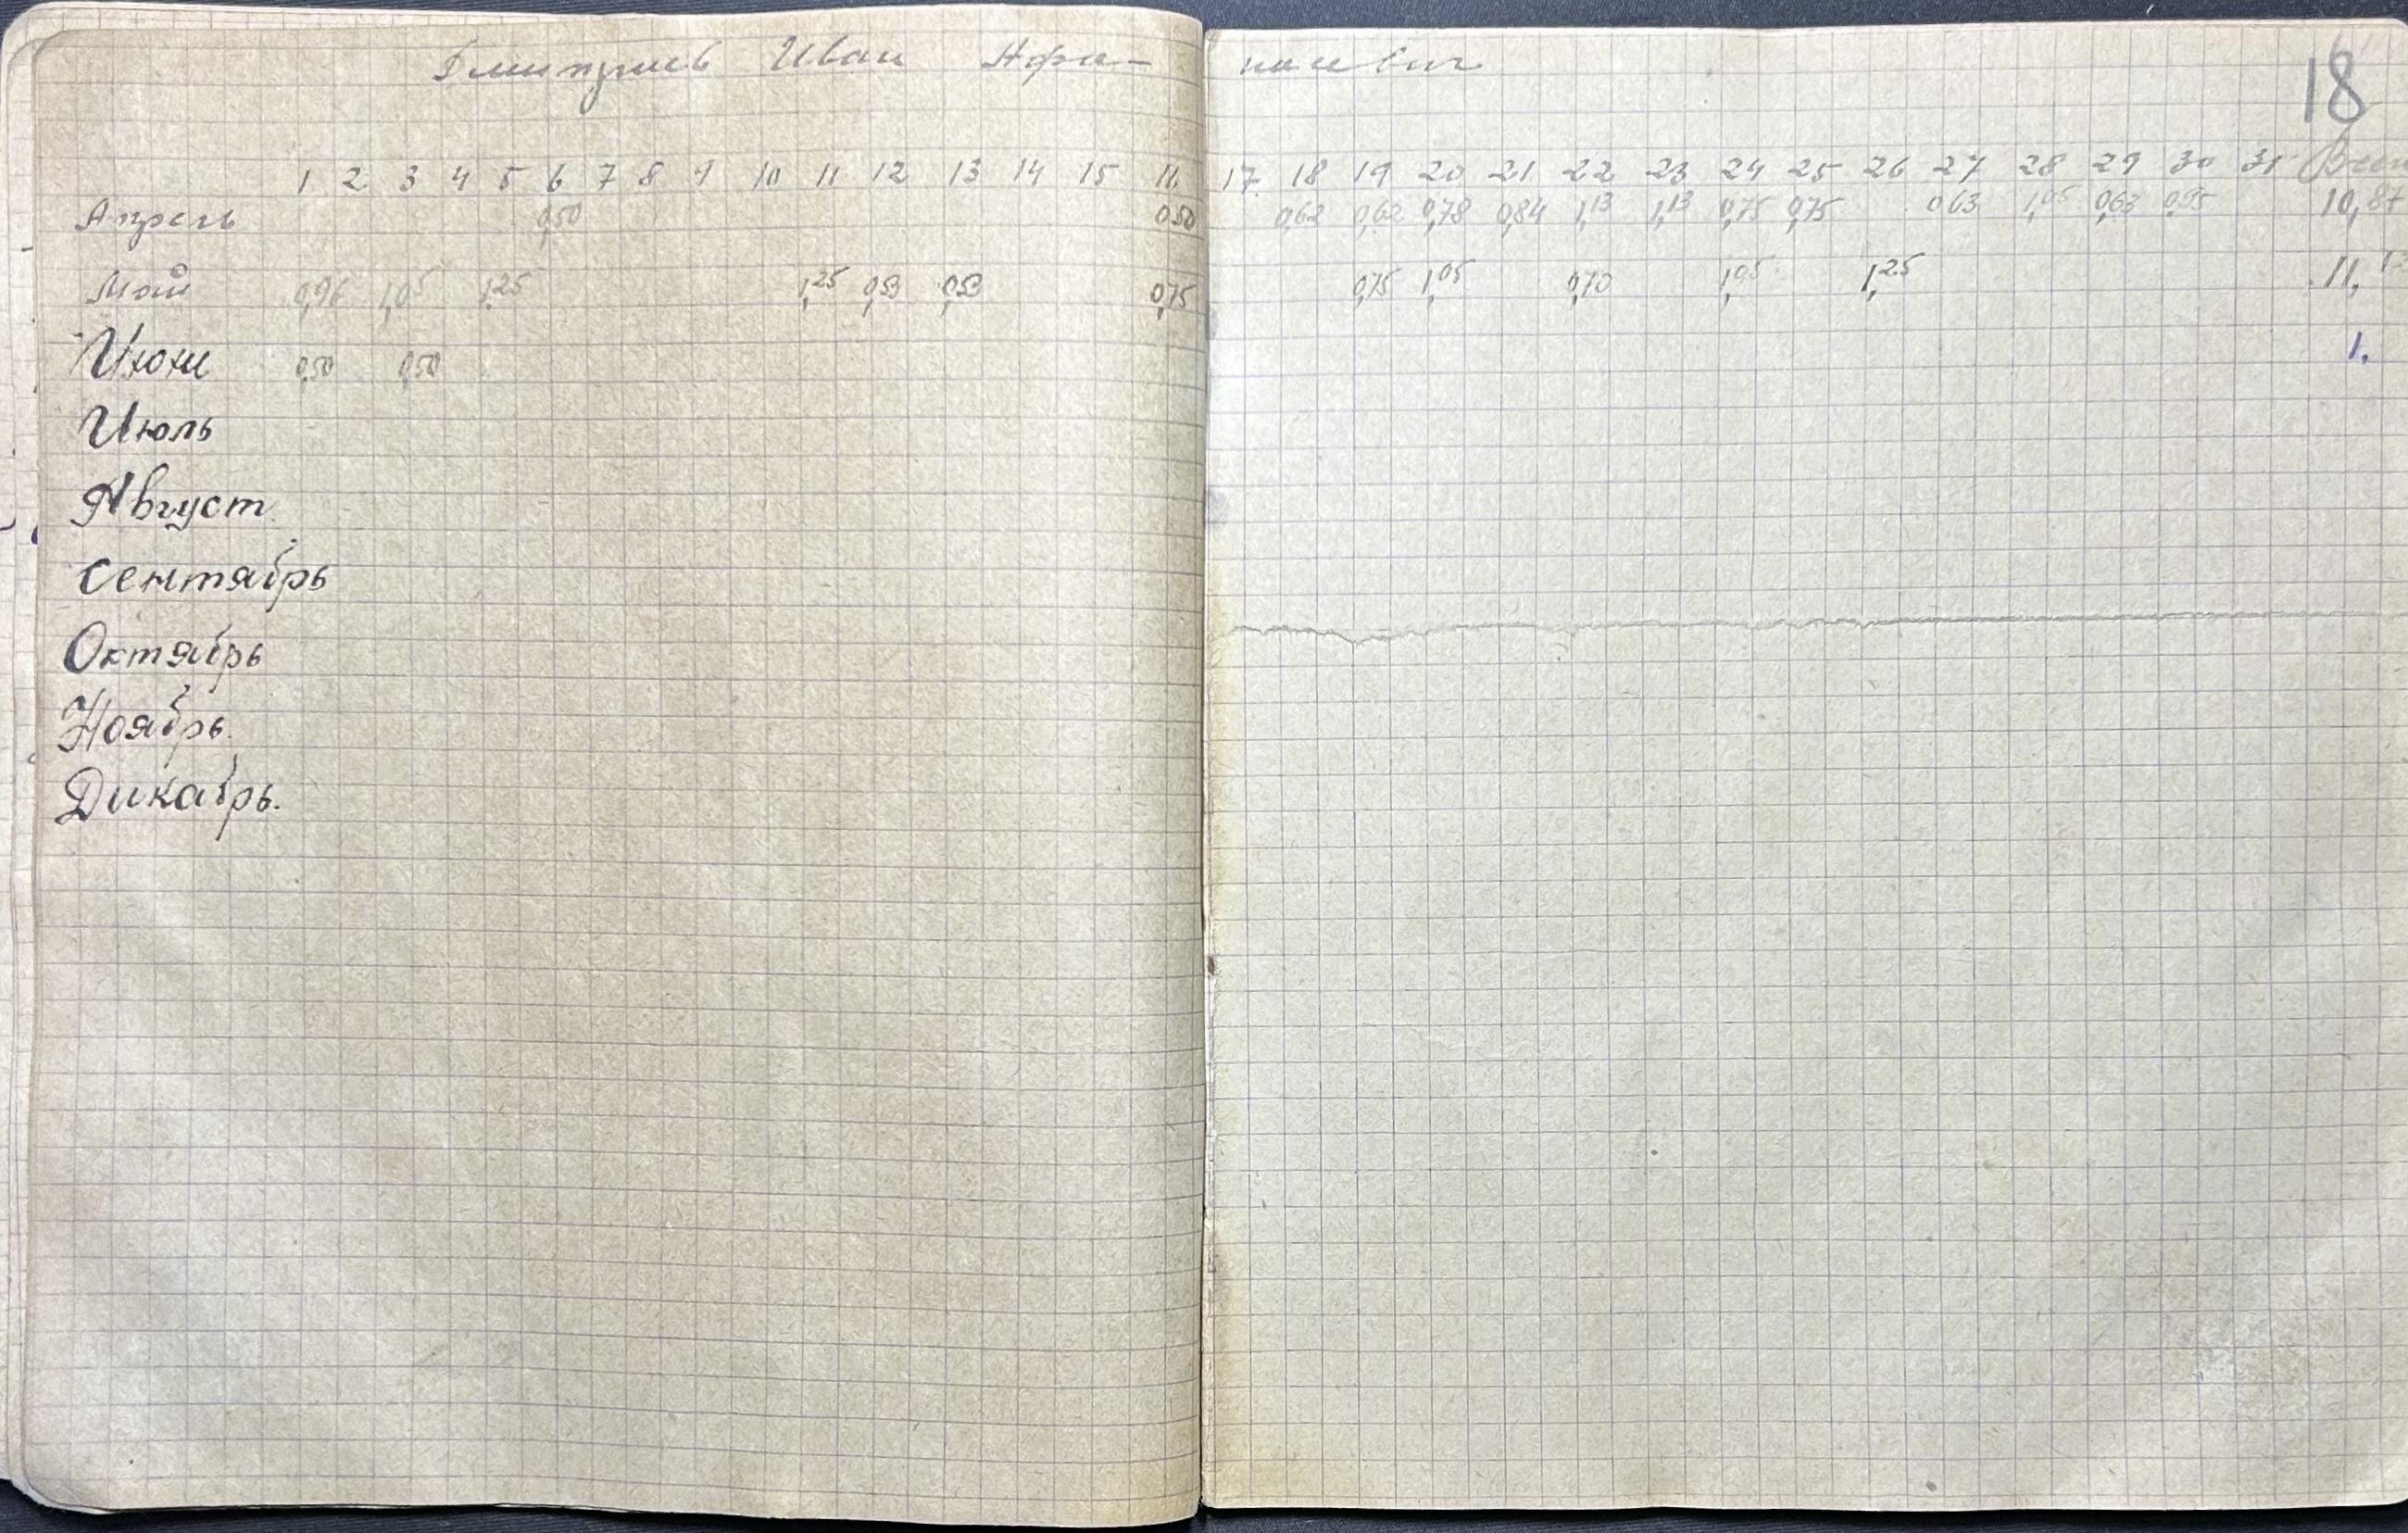 Дмитриев Иван Афа- насевич
18
1 2 3 4 5 6 7 8 9 10 11 12 13 14 15 16 17. 18 19 20 21 22 23 24 25 26 27 28 29 30 31 Всего
Апрель 0,50 0,50 0,62 0,62 0,78 0,84 1,13 1,13 0,75 0,75 0,63 1,05 0,63 0,95 10,87
Май 0,96 1,05 1,25 1,25 0,53 0,53 0,75 0,75 1,05 0,70 1,05 1,25 11,
Июни 0,50 0,50 1.
Июль
Август
Сентябрь
Октябрь
Ноябрь.
Дикабрь.